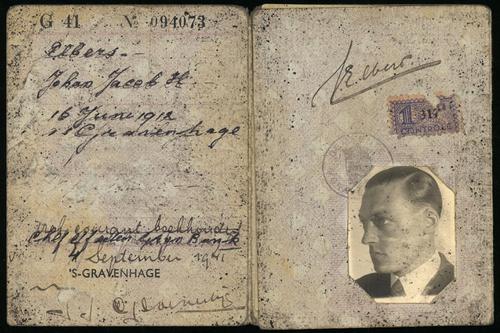 G 41 № 094073
Elbers.-
Johan Jacob H
16 Juni 1912
's Gravenhage
boekhouder
Bank
4 September 1941
'S-GRAVENHAGE
JElbers
1 31
CONTROLE